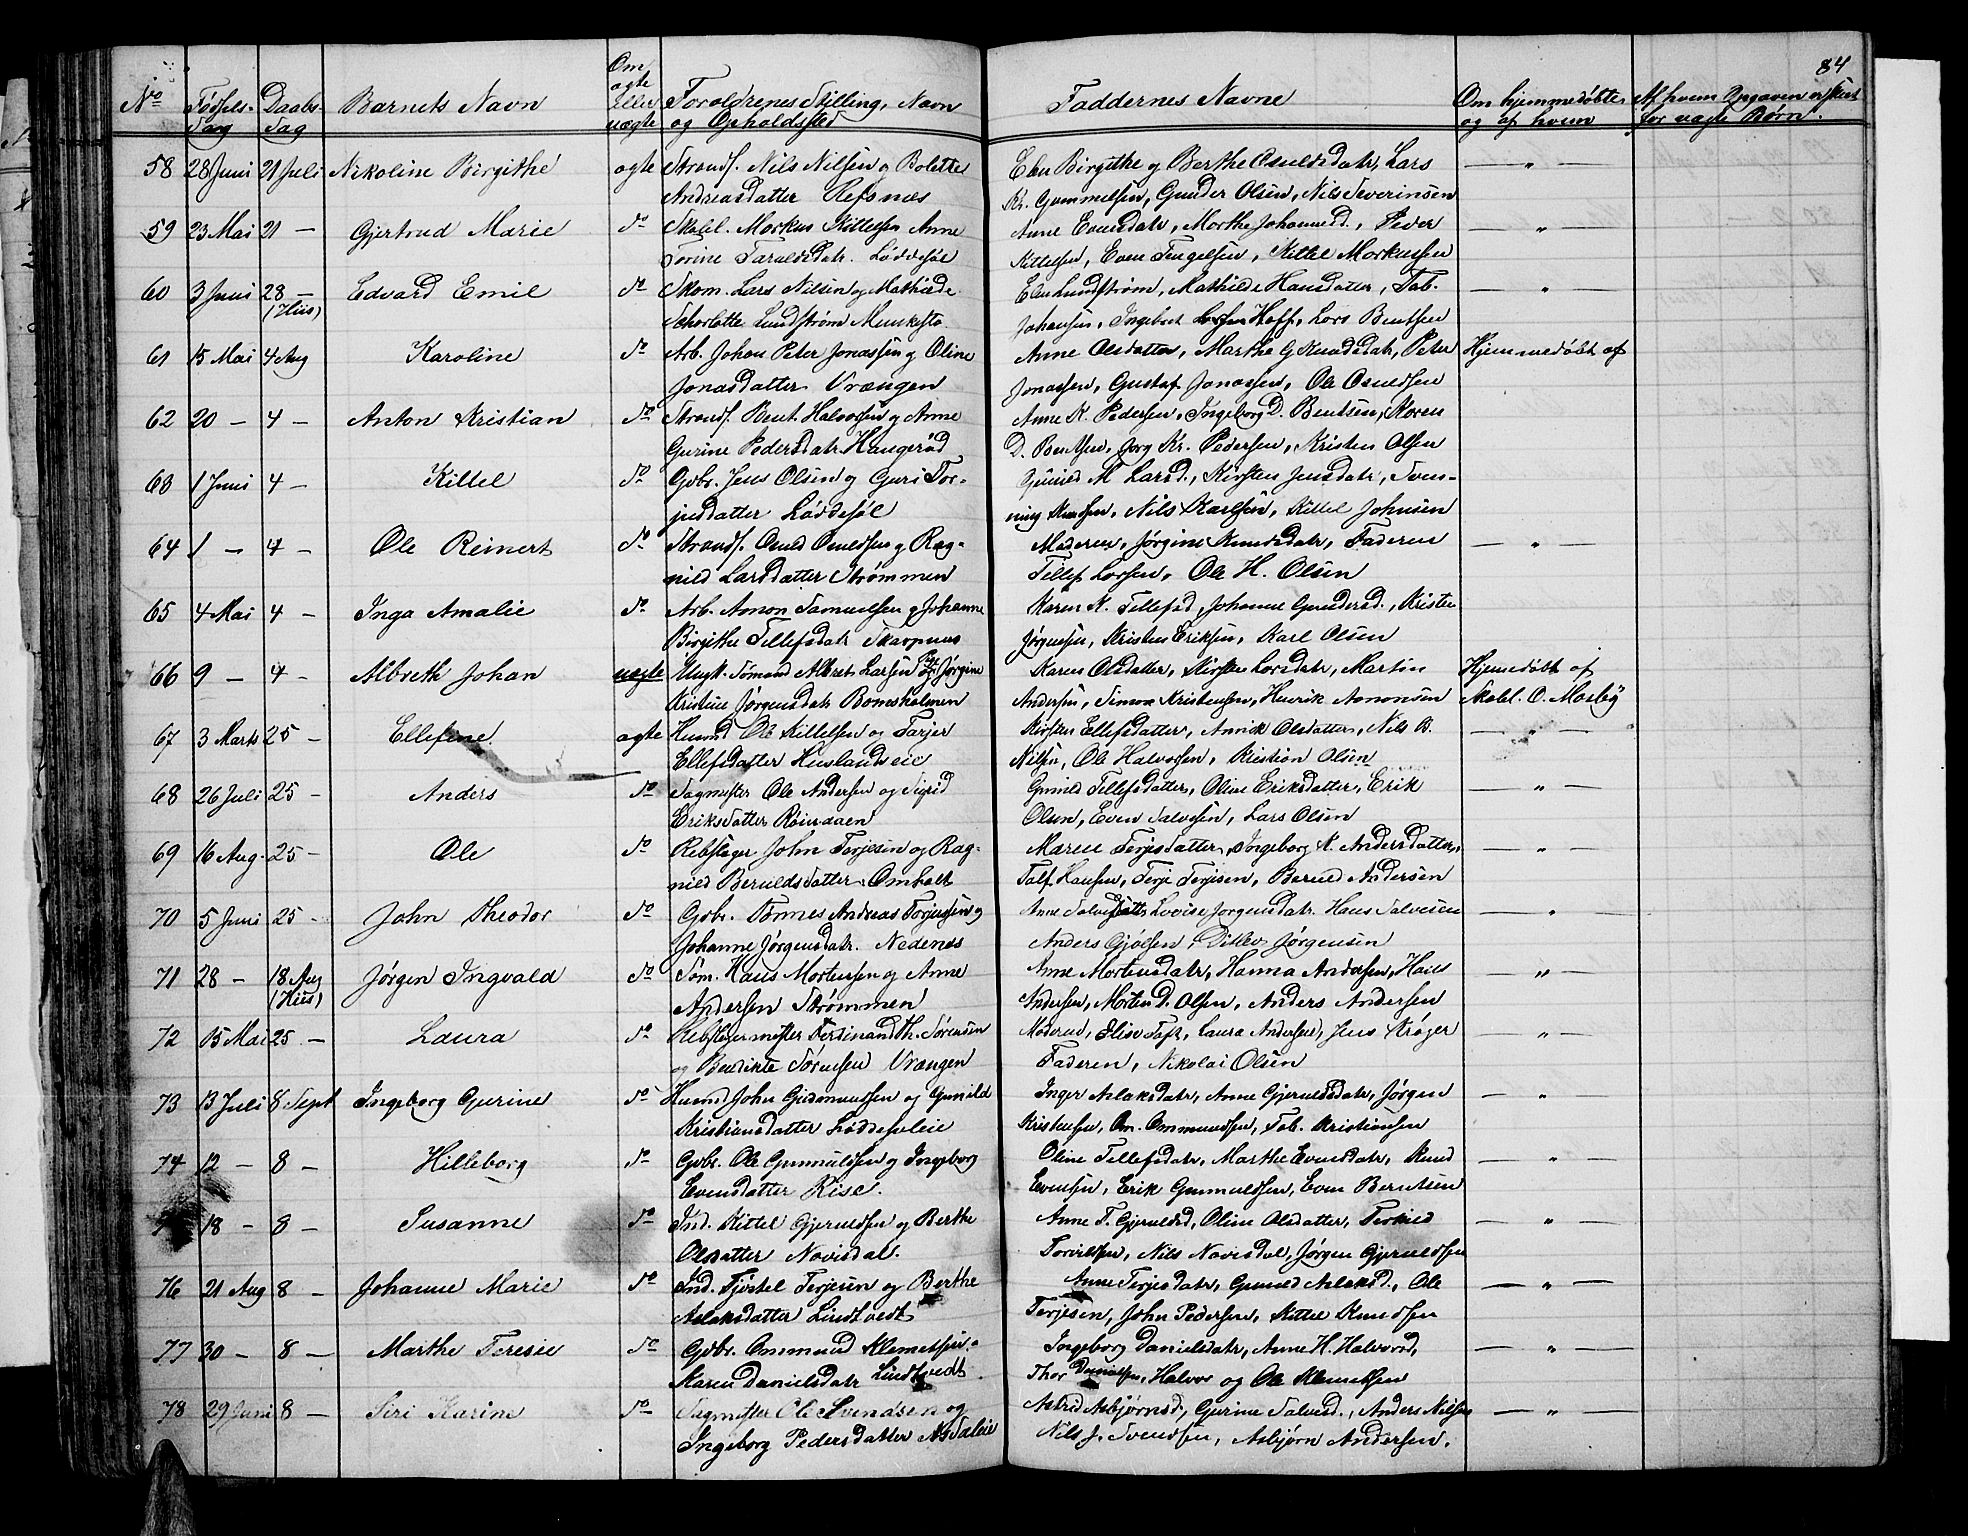 84
No Fødsels-Dag Daabs-Dag Barnets Navn Om ægte eller uægte Forældrenes Stilling, Navn og Opholdsted Faddernes Navne Om hjemmedøbte og af hvem Af hvem Opgaven er skeet for uægte Børn.
58 28 Juni 21 Juli Nikoline Birgithe ægte Strands. Nils Nilsen og Bolette Elen Birgithe og Berthe Osuldsdatr, Lars — „ —
Andreasdatter Refsnæs Kr. Gommelsen, Gunder Olsen, Nils Severinsen
59 23 Mai 21 — Gjertrud Marie do Skolel. Markus Kittelsen Anne Anne Evensdatr, Morthe Johannesd., Peder — „ —
Torine Taraldsdatr. Løddesøl Kittelsen, Even Tengelsen, Kittel Markussen
60 3 Juni 28 — Edvard Emil do Skom. Lars Nilsen og Mathilde Elen Lundstrøm, Mathilde Hansdatter, Tob. — „ —
(Huus) Scharlotte Lundstrøm Munkesto Johansen, Ingebret Hoff, Lars Bentsen
61 15 Mai 4 Aug Karoline do Arb. Johan Peter Jonassen og Oline Anne Olsdatter, Marthe G Knudsdatr, Peter Hjemmedøbt af
Jonasdatter Vrængen Jonassen, Gustaf Jonassen, Ole Osuldsen
62 20 — 4 — Anton Kristian do Strands. Bent Halvorsen og Anne Anne K. Pedersen, Ingeborg D. Bentsen, Karen
Gurine Pedersdatr Haugerød D. Bentsen, Jørg Kr. Pedersen, Kristen Olsen
63 1 Juni 4 — Kittel do Gdbr. Jens Olsen og Guri Tor- Gunild M Larsd., Kirsten Jensdatr, Sven-
jusdatter Løddesøl ning Knudsen, Nils Karlsen, Kittel Johnsen
64 1 — 4 — Ole Reinert do Strands. Osuld Osuldsen og Rag- Moderen, Jørgine Knudsdatr, Faderen — „ —
nild Larsdatter Strømmen Tellef Larsen, Ole H. Olsen
65 4 Mai 4 — Inga Amalie do Arb. Amon Samuelsen og Johanne Karen K. Tellefsd, Johanne Gundersd., Kristen
Birgithe Tellefsdatr Skarpnæs Jørgensen, Kristen Eriksen, Karl Olsen
66 9 — 4 — Albreth Johan uægte Ungk. Sømand Albret Larsen og Jørgine Karen Olsdatter, Kirsten Larsdatr, Martin Hjemmedøbt af
Kristine Jørgensdatr Bomsholmen Andersen, Simon Kristensen, Henrik Amonsen Skolel. O. Mosby
67 3 Marts 25 — Ellefine ægte Husmd Ole Kittelsen og Tarjer Kirsten Ellefsdatter, Annik Olsdatter, Nils B. — „ —
Ellefsdatter Huslandseie Nilsen, Ole Halvorsen, Kristian Olsen
68 26 Juli 25 — Anders do Sagmester Ole Andersen og Sigrid Gunild Tellefsdatter, Oline Eriksdatter, Erik — „ —
Eriksdatter Røindalen Olsen, Even Salvesen, Lars Olsen
69 16 Aug. 25 — Ole do Rebslager John Terjesen og Rag- Maren Terjesdatter, Ingeborg K. Andersdatter, — „ —
nild Beruldsdatter Omholt Talf Hansen, Terje Terjesen, Beruld Andersen
70 5 Juni 25 — John Theodor do Gdbr. Tønnes Andreas Torjusen og Anne Salvesdatter Lovise Jørgensdatr. Hans Salvesen „
Johanne Jørgensdatr. Nedenæs Anders Gjølsen, Ditlev Jørgensen
71 28 — 18 Aug Jørgen Ingvald do Tøm. Hans Mortensen og Anne Anne Mortensdatr, Hanna Andersen, Hans — „ —
(Huus) Andersen Strømmen Andersen, Morten D. Olsen, Anders Andersen
72 15 Mai 25 — Laura do Rebslagermester Ferdinand Th. Sørensen Moderen, Elise Falk, Laura Andersen, Jens Krøger — „ —
og Bendikte Sørensen Vrængen Faderen, Nikolai Olsen
73 13 Juli 8 Sept Ingeborg Gurine do Husmd John Gudmundsen og Gunild Inger Aslaksdatr, Anne Gjeruldsdatr, Jørgen — „ —
Kristiansdatter Løddesøleie Kristensen, Om. Ommundsen, Tob. Kristiansen
74 12 — 8 — Hilleborg do Gdbr. Ole Gunnuldsen og Ingeborg Oline Tellefsdatr, Marthe Evensdatr, Knud — „ —
Evensdatter Rise. Evensen, Erik Gunnuldsen, Even Berntsen
18 — 8 — Susanne do Ind. Kittel Gjeruldsen og Berthe Anne T. Gjeruldsd, Oline Olsdatter, Terkild — „ —
Olsdatter Navisdal. Torvildsen, Nils Navisdal, Jørgen Gjeruldsen
76 21 Aug 8 — Johanne Marie do Ind. Kjøstel Terjesen og Berthe Anne Terjesdatr, Gunild Aslaksd., Ole — „ —
Aslaksdatter Lindtvedt Terjesen, John Pedersen, Kittel Knudsen
77 30 — 8 — Marthe Teresie do Gdbr. Ommund Klemetsen Ingeborg Danielsdatr, Anne H. Halvorsd, — „ —
Karen Danielsdatr Lindtvedt Thor Danielsen, Halvor og Ole Klemetsen
78 29 Juni 8 — Siri Karine do Sagmester Ole Svendsen og Astrid Asbjørnsd, Gurine Salvesd., Anders Nilsen — „ —
Ingeborg Pedersdatter Asdaleie Nils J. Svendsen, Asbjørn Andersen.